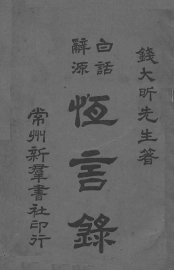 錢大昕先生著
白話
辭源
恆言錄
常州新羣書社印行